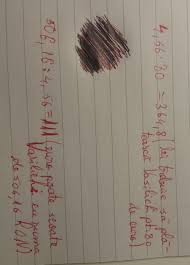 4,56·80 = 364,8 (lei trebuie să plă-
tească Vasilică pt. 80
de euro)
506,16 : 4,56 = 111 (euro poate scoate
Vasilică cu suma
de 506,16 RON)